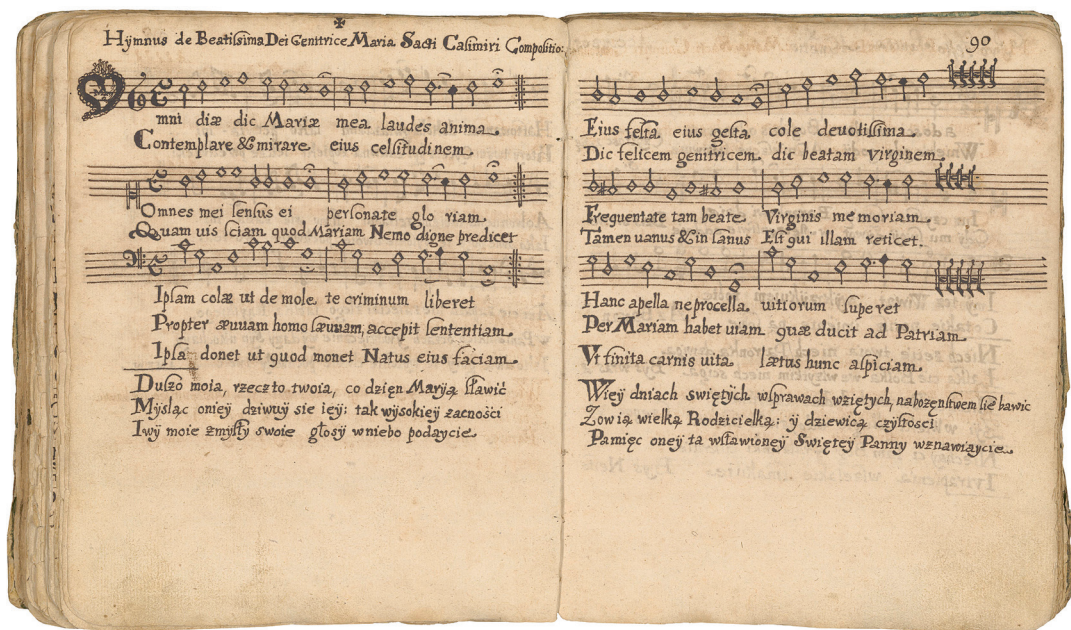 Hÿmnus de Beatissima Dei Genitrice Maria Sacti Casimiri Compositio:
Omni diæ dic Mariæ mea laudes anima.
Contemplare & mirare eius celsitudinem.
Omnes mei sensus ei personate glo riam.
Quam uis sciam quod Mariam Nemo digne predicet
Ipsam colæ ut de mole te criminum liberet
Propter æuuam homo sæuuam, accepit sententiam.
Ipsa donet ut quod monet Natus eius faciam.
Duszo moia, rzecz to twoia, co dzięn Maryią sławić
Mÿsląc onieÿ dziwuÿ sie ieÿ: tak wÿsokieÿ zacności
Iwÿ moie zmysłÿ swoie głosÿ wniebo podaycie.
90
Eius festa eius gesta cole deuotissima.
Dic felicem genitricem dic beatam virginem.
Frequentate tam beate Virginis memoriam.
Tamen uanus & in sanus Est qui illam reticet.
Hanc apella ne procella uitiorum superet
Per Mariam habet uiam quæ ducit ad Patriam.
Vt finita carnis uita lætus hunc aspiciam.
Wieÿ dniach swiętÿch wsprawach wziętÿch, nabozęnstwem sie bawic
Zow ią wielką Rodzicielką: ÿ dziewicą czÿstości
Pamięc oneÿ ta wsławioneÿ Swięteÿ Pannÿ wznawiaycie.